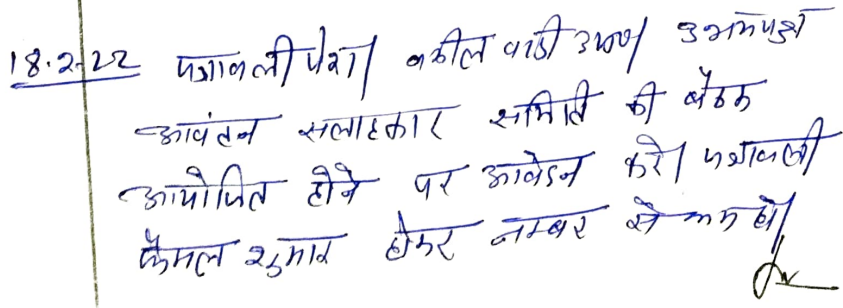 18.2.22 पत्रावली पेश। वकील वादी उप0। उभयपक्ष
आवंटन सलाहकार समिति की बैठक
आयोजित होने पर आवेदन करे। पत्रावली
फैसल शुमार होकर नम्बर से कम हो।